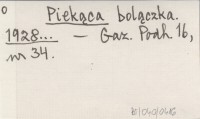 o
Piekąca bolączka.
1928... — Gaz. Podh. 16,
nr 34.